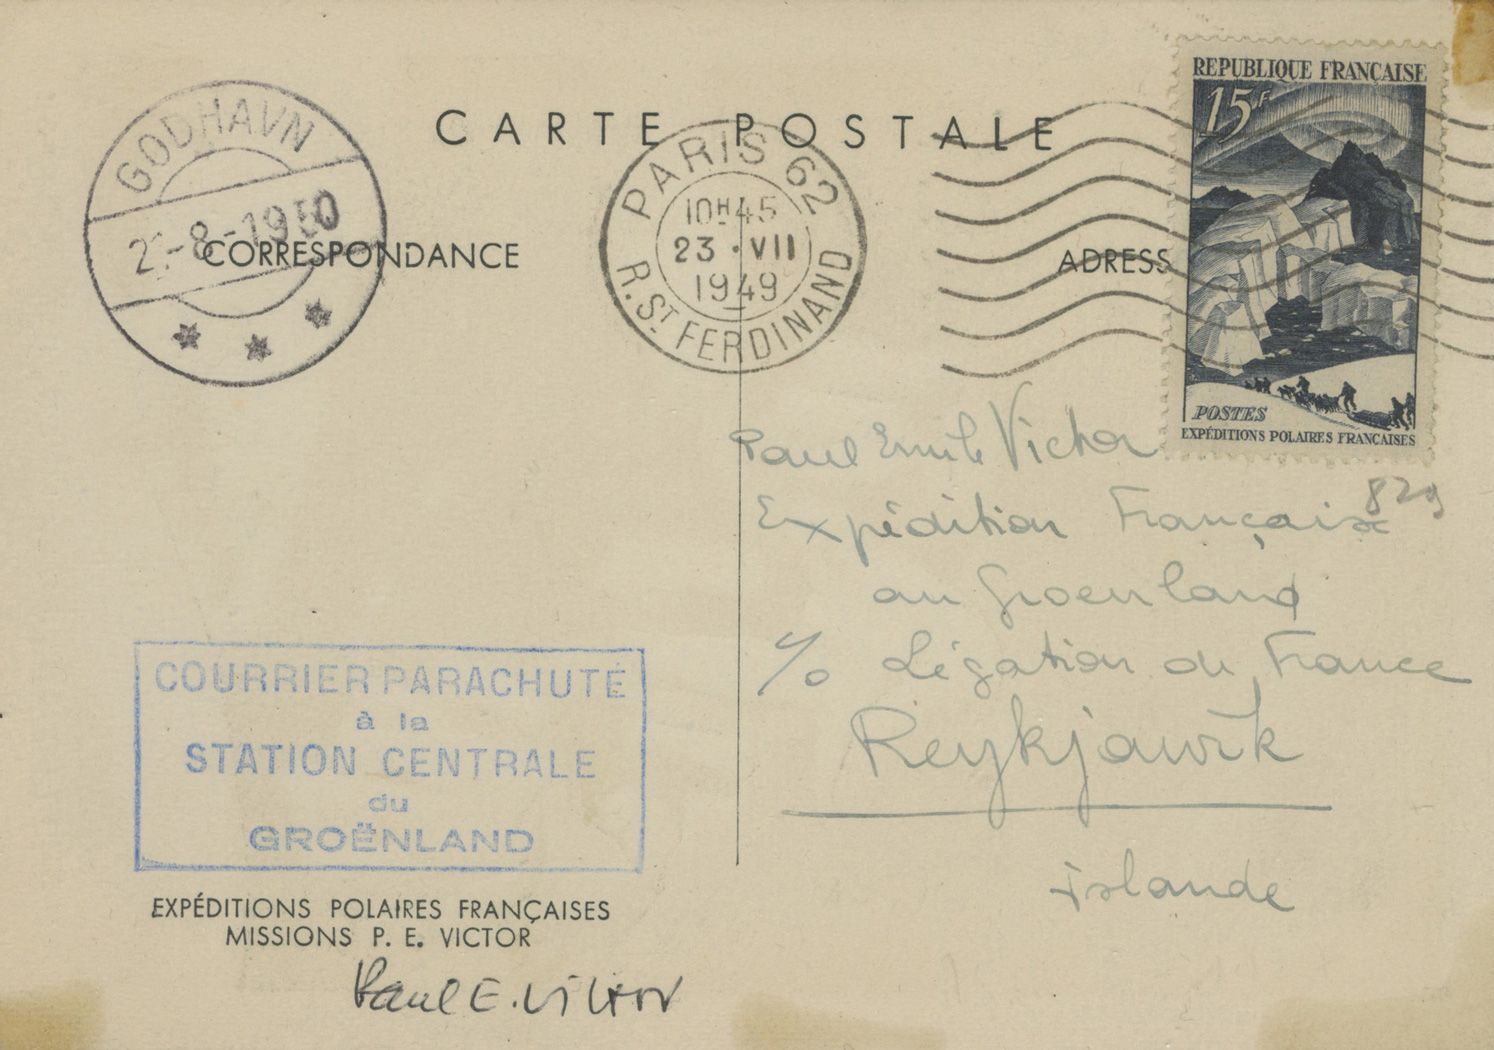 CARTE POSTALE
GODHAVN
-8-1950
CORRESPONDANCE
PARIS 62
10H45
23 • VII
1949
R. ST FERDINAND
ADRESS
REPUBLIQUE FRANÇAISE
15F
POSTES
EXPÉDITIONS POLAIRES FRANÇAISES
Paul Emile Victor
829
Expédition Française
au Groenland
c/o Légation de France
Reykjawik
Islande
COURRIER PARACHUTÉ
à la
STATION CENTRALE
du
GROËNLAND
EXPÉDITIONS POLAIRES FRANÇAISES
MISSIONS P. E. VICTOR
Paul E. Victor